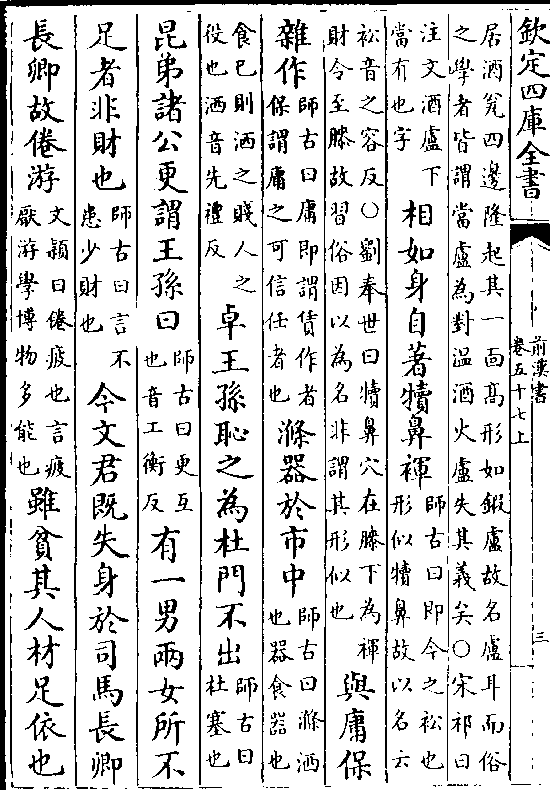 欽定四庫全書
前漢書
卷五十七上
三
居酒瓮四邊隆起其一面高形如鍜盧故名盧耳而俗
之學者皆謂當盧為對温酒火盧失其義矣○宋祁曰
注文酒盧下
當有也字
相如身自著犢鼻褌
師古曰即今之衳也
形似犢鼻故以名云
衳音之容反○劉奉世曰犢鼻穴在膝下為褌
財令至膝故習俗因以為名非謂其形似也
與庸保
雜作
師古曰庸即謂賃作者
保謂庸之可信任者也
滌器於市中
師古曰滌洒
也器食器也
食已則洒之賤人之
役也洒音先禮反
卓王孫恥之為杜門不出
師古曰
杜塞也
昆弟諸公更謂王孫曰
師古曰更互
也音工衡反
有一男兩女所不
足者非財也
師古曰言不
患少財也
今文君既失身於司馬長卿
長卿故倦游
文頴曰倦疲也言疲
厭游學博物多能也
雖貧其人材足依也